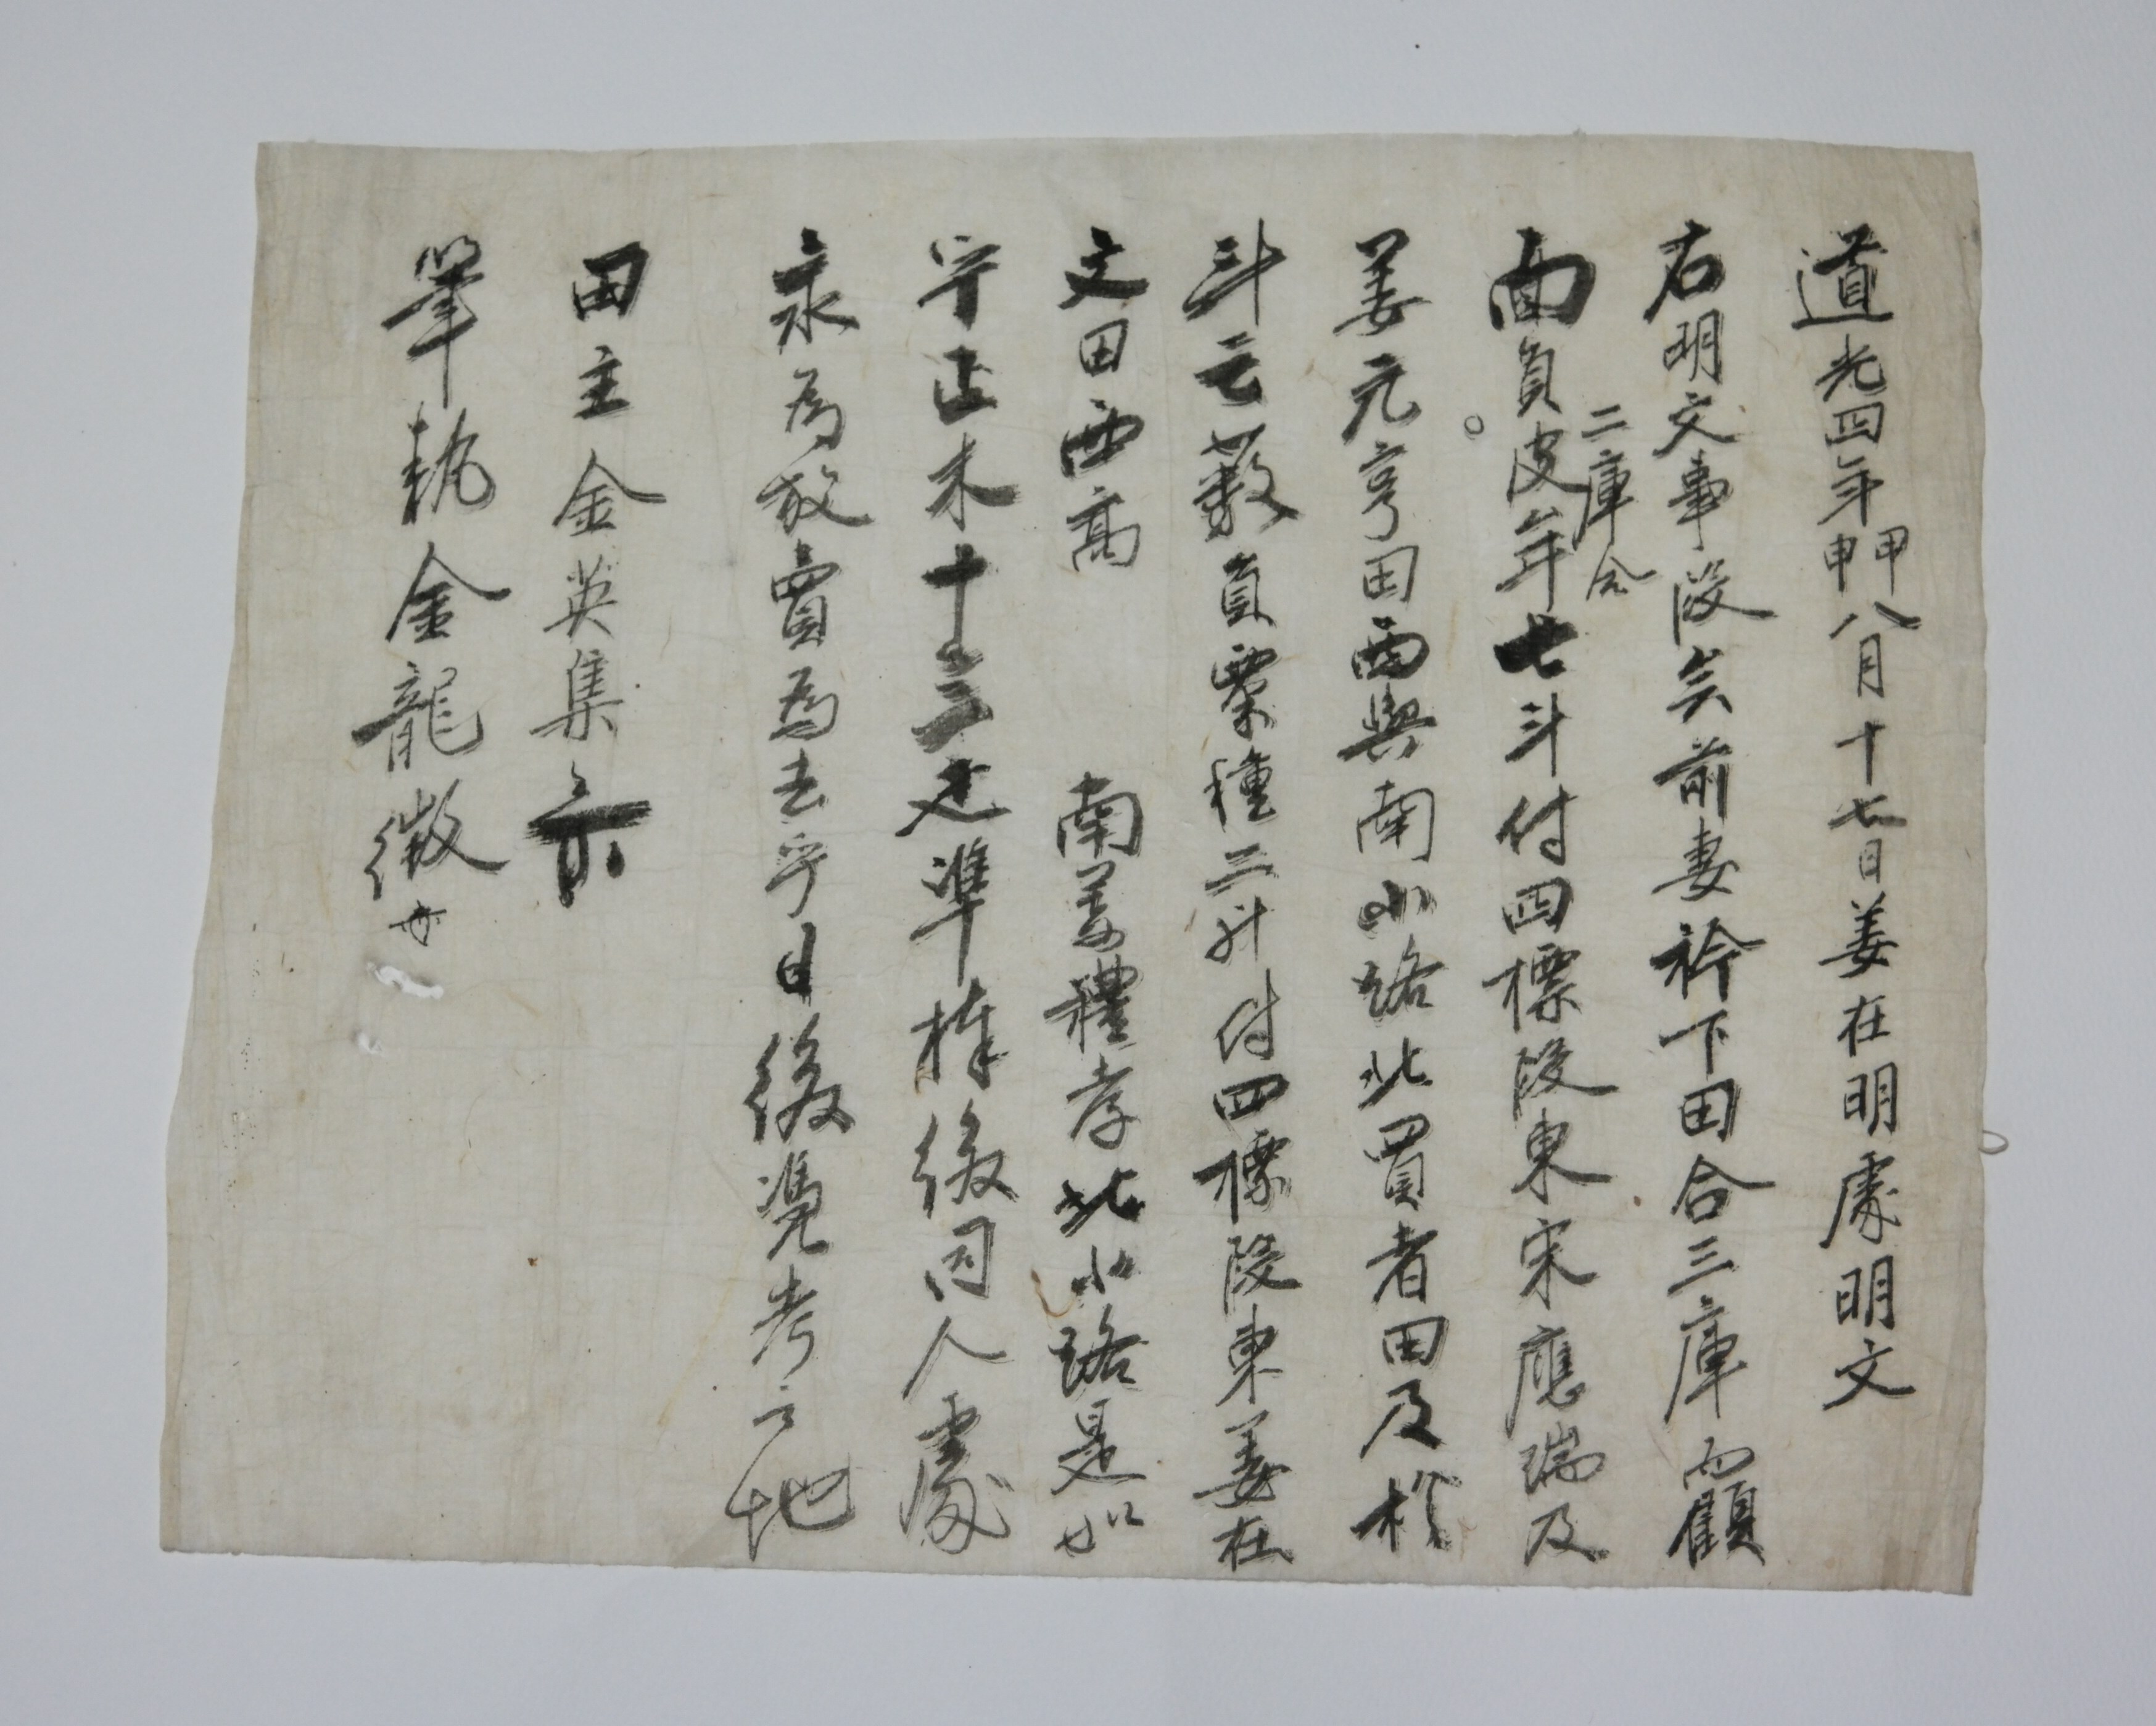 道光四年甲申八月十七日姜在明處明文
右明文事段矣前妻衿下田合三庫
面員皮年七斗付四標段東宋應瑞及
二庫合
姜元亨田西與南小路北買者田及
斗云藪員粟種三升付四標段東姜在
文田西高 南姜禮孝北小路是如
乎正木十三疋準捧後同人處
永為放賣為去乎日後憑考之地
田主金英集
筆執金龍徵